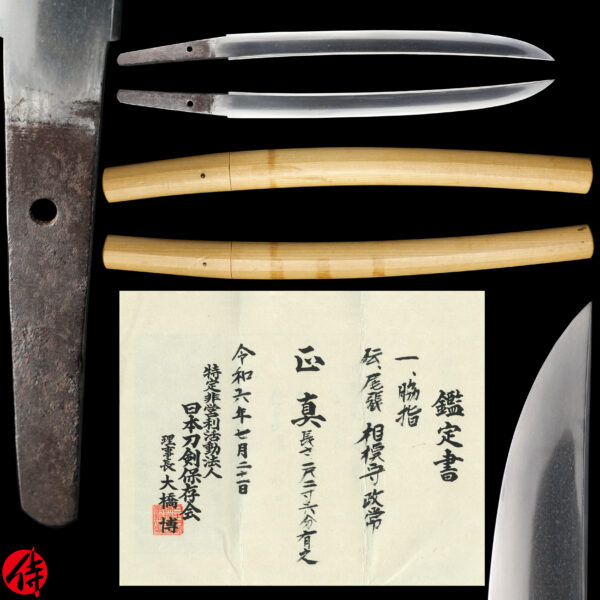 鑑定書
一、脇指
伝、尾張 相模守政常
正真 長さ一尺二寸六分有之
令和六年七月二十一日
特定非営利活動法人
日本刀剣保存会
理事長 大橋博
侍